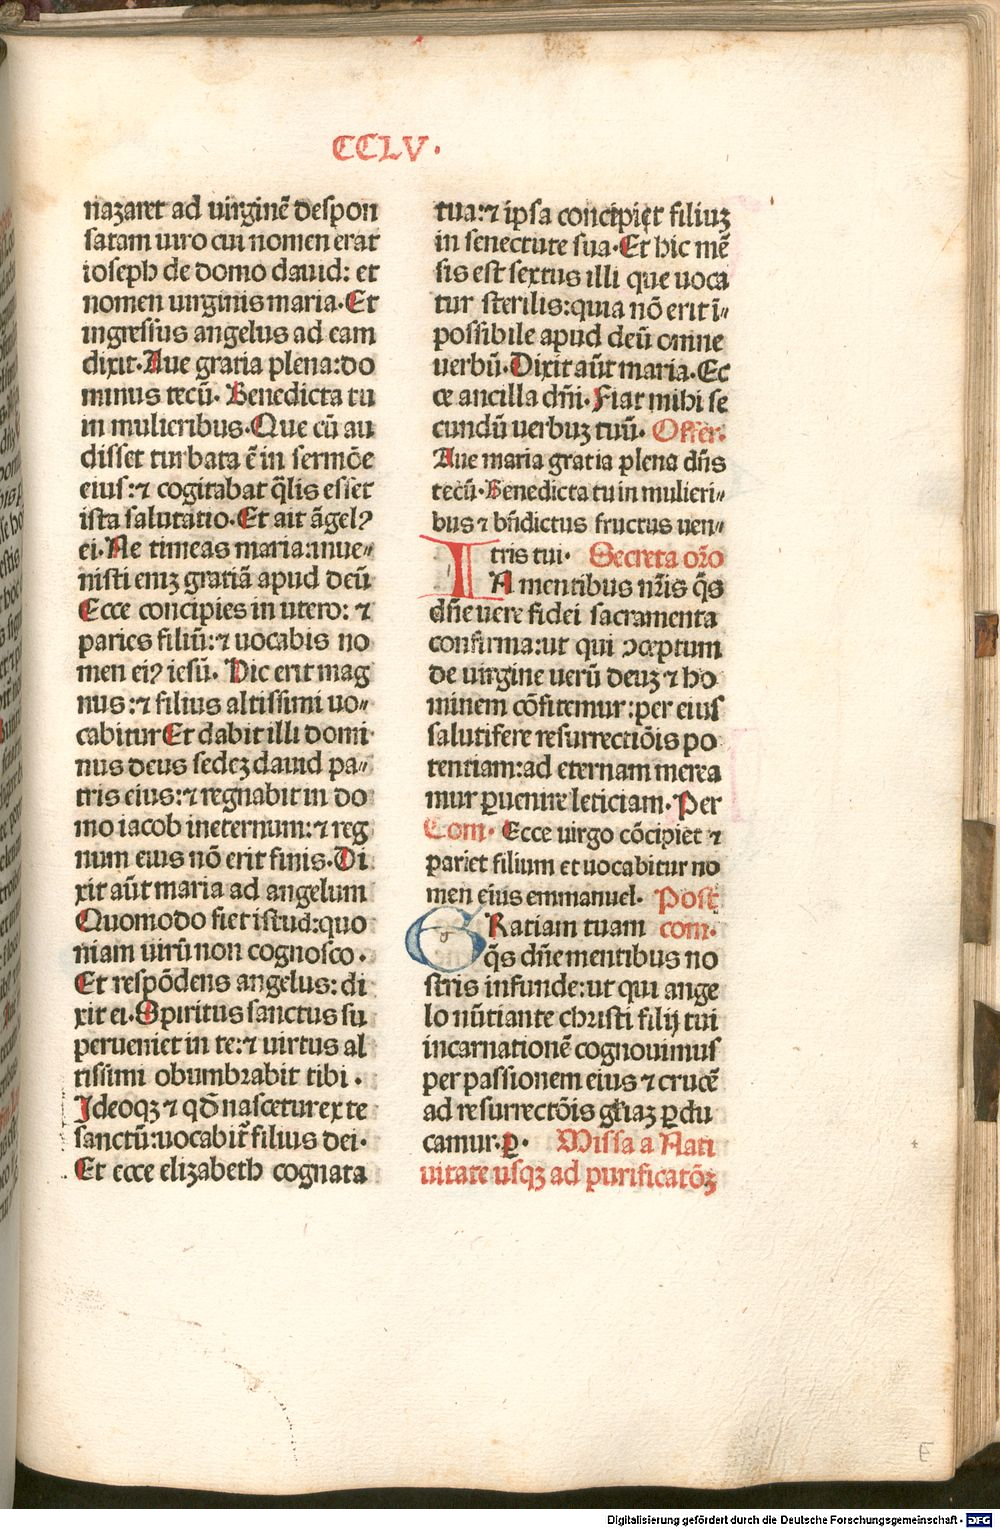 CCLV.
nazaret ad virginē despon
satam viro cui nomen erat
ioseph de domo dauid: et
nomen virginis maria. Et
ingressus angelus ad eam
dixit. Aue gratia plena: do
minus tecū. Benedicta tu
in mulieribus. Que cū au
disset turbata ē in sermōe
eius: ⁊ cogitabat q̄lis esset
ista salutatio. Et ait āgelꝰ
ei. Ne timeas maria: inue⸗
nisti enīꝫ gratiā apud deū
Ecce concipies in vtero: ⁊
paries filiū: ⁊ vocabis no
men eiꝰ iesū. Hic erit mag
nus: ⁊ filius altissimi vo⸗
cabitur Et dabit illi domi
nus deus sedeꝫ dauid pa⸗
tris eius: ⁊ regnabit in do
mo iacob ineternum: ⁊ reg
num eius nō erit finis. Di
xit aūt maria ad angelum
Quomodo fiet istud: quo
niam virū non cognosco.
Et respōdens angelus: di
xit ei. Spiritus sanctus su
perueniet in te: ⁊ virtus al
tissimi obumbrabit tibi.
Ideoqꝫ ⁊ qđ nascetur ex te
sanctū: vocabit̄ filius dei.
Et ecce elizabeth cognata
tua: ⁊ ipsa concipiet filiuꝫ
in senectute sua. Et hic mē
sis est sextus illi que voca
tur sterilis: quia nō erit ī⸗
possibile apud deū omne
verbū. Dixit aūt maria. Ec
ce ancilla dn̄i. Fiat mihi se
cundū verbuꝫ tuū. Offer.
Aue maria gratia plena dn̄s
tecū. Benedicta tu in mulieri⸗
bus ⁊ bn̄dictus fructus ven⸗
tris tui. Secreta or̄o
IN mentibus nr̄is q̄s
dn̄e vere fidei sacramenta
confirma: vt qui ꝯceptum
de virgine verū deuꝫ ⁊ ho
minem cōfitemur: per eius
salutifere resurrectiōis po
tentiam: ad eternam merea
mur ꝑuenire leticiam. Per
Com. Ecce virgo cōcipiet ⁊
pariet filium et vocabitur no
men eius emmanuel. Post
GRatiam tuam com.
q̄s dn̄e mentibus no
stris infunde: vt qui ange
lo nūtiante christi filij tui
incarnationē cognouimus
per passionem eius ⁊ crucē
ad resurrectōis gl̄iaꝫ ꝑdu
camur. ꝑ. Missa a Nati
uitate usqꝫ ad purificatōꝫ
F
Digitalisierung gefördert durch die Deutsche Forschungsgemeinschaft - DFG